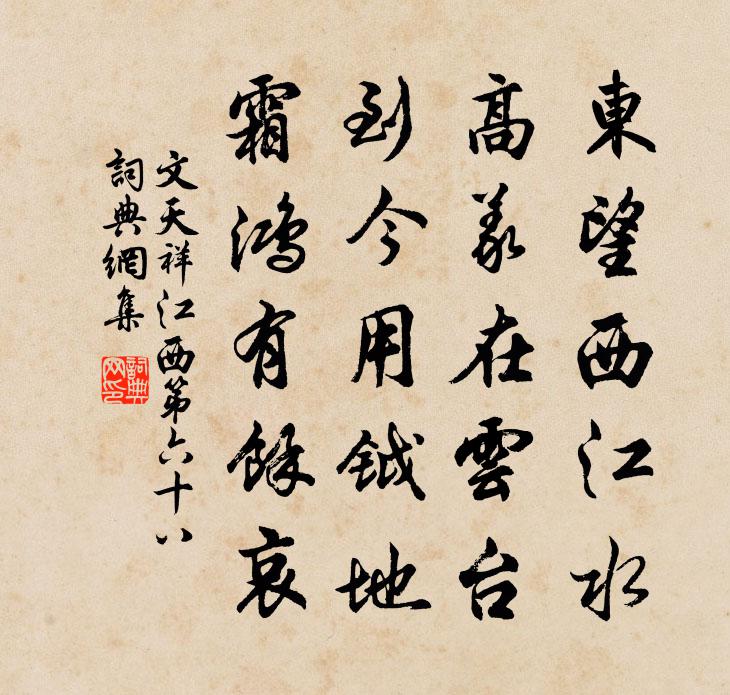 東望西江水
高義在雲台
到今用鉞地
霜鴻有餘哀
文天祥江西第六十八
詞典網集
詞典网印